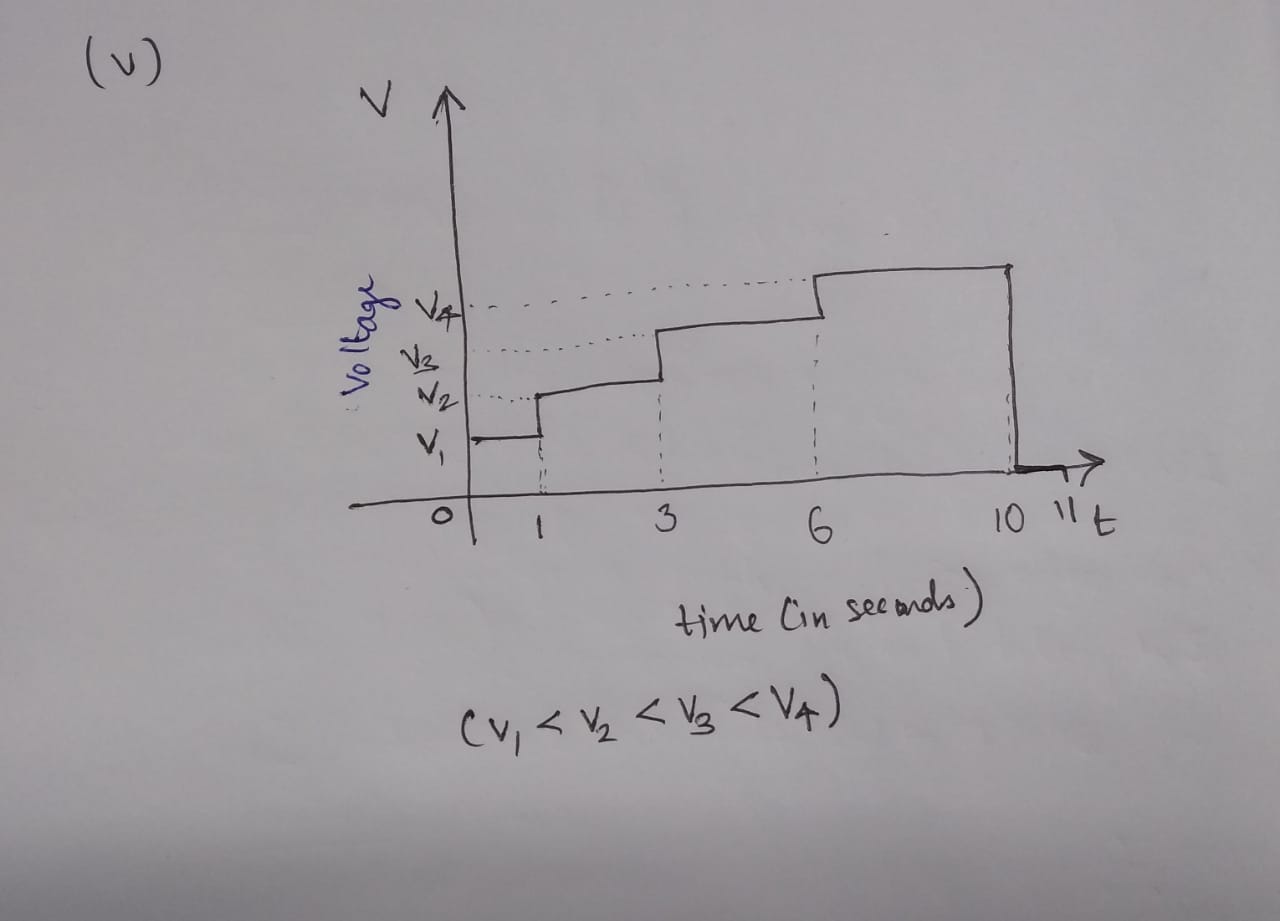 (v)
V
Voltage
V4
V3
V2
V1
0 1 3 6 10 11 t
time (in seconds)
(V1 < V2 < V3 < V4)